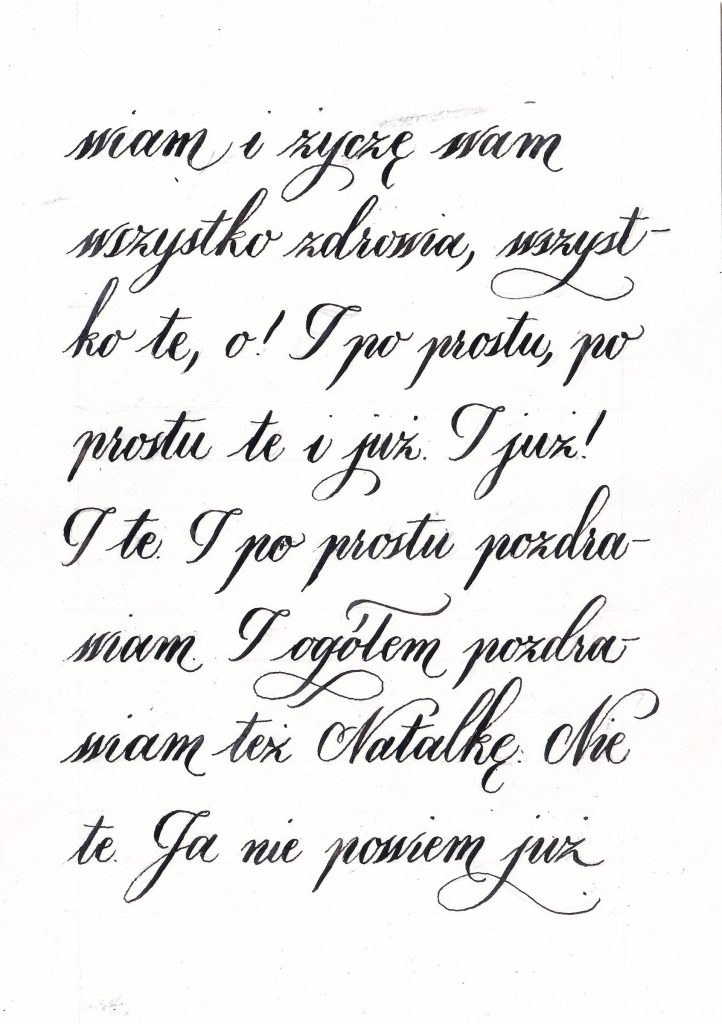 wiam i życzę wam
wszystko zdrowia, wszyst-
ko te, o! I po prostu, po
prostu te i już. I już!
I te. I po prostu pozdra-
wiam. I ogółem pozdra-
wiam też Natalkę. Nie
te. Ja nie powiem już.